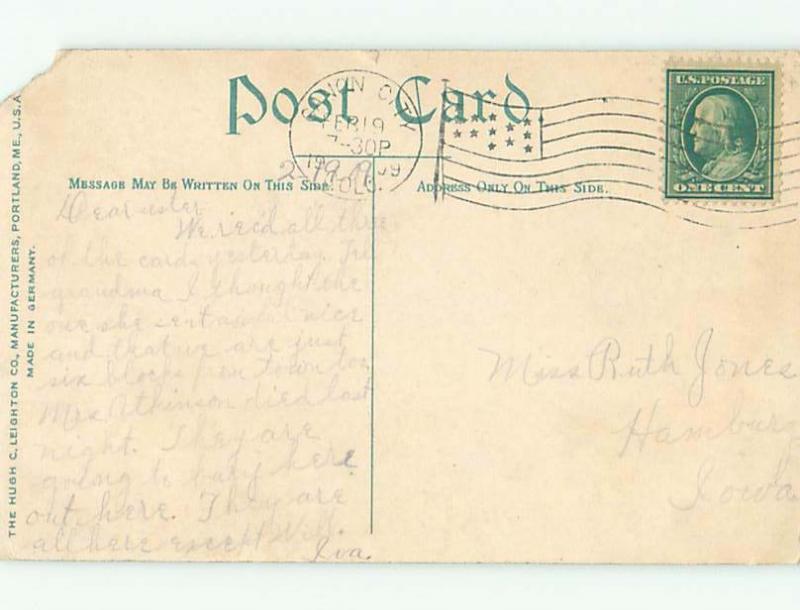 Post Card
CANON CITY
FEB 19
7-30P
1909
COLO.
2-19-09
U.S. POSTAGE
ONE CENT
MESSAGE MAY BE WRITTEN ON THIS SIDE.
ADDRESS ONLY ON THIS SIDE.
THE HUGH C. LEIGHTON CO., MANUFACTURERS, PORTLAND, ME., U.S.A.
MADE IN GERMANY.
Dear sister
We rec'd all three
of the cards yesterday.
grandma I thought the
one she sent nice
and that we are just
six blocks from town too
Mrs Atkinson died last
night. They are
going to bury here
out here. They are
all here except Will.
Iva.
Miss Ruth Jones
Hamburg
Iowa